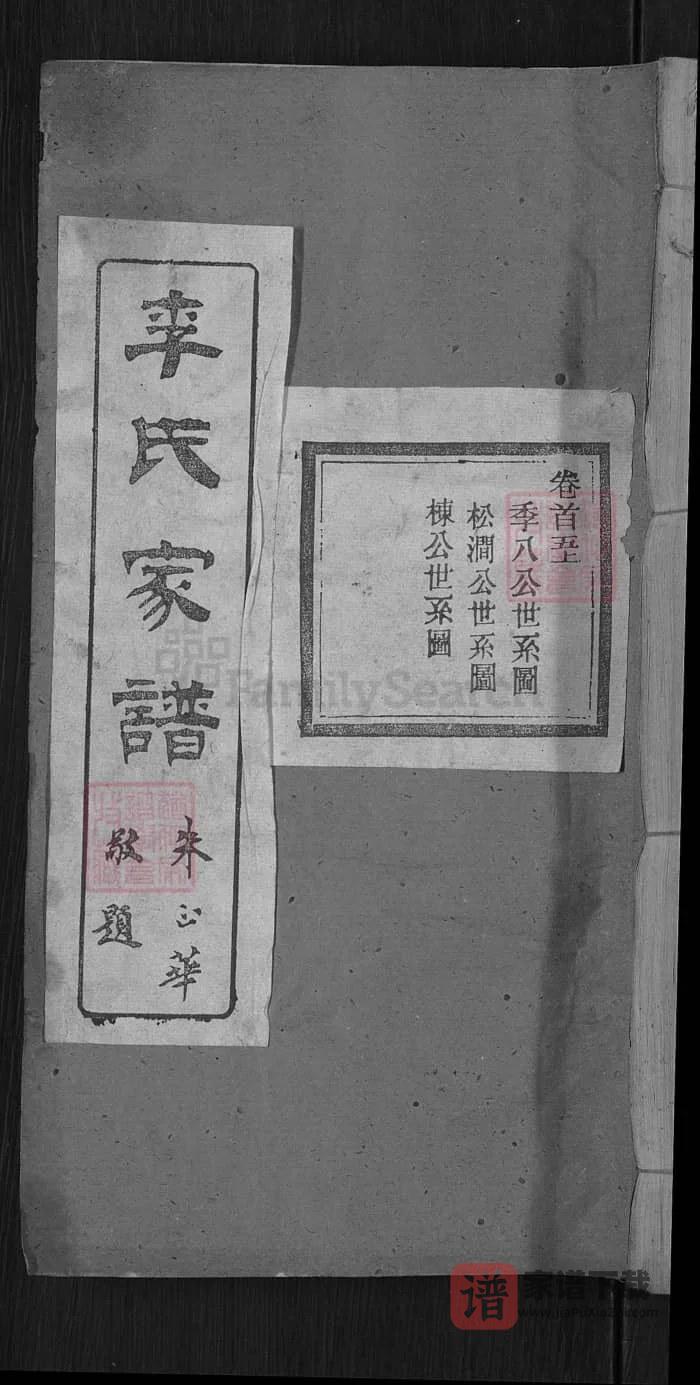 卷首五
季八公世系圖
松澗公世系圖
棟公世系圖
李氏家譜
朱正華
敬題
FamilySearch
谱 家谱下载
www.jiaPuXiaZai.com